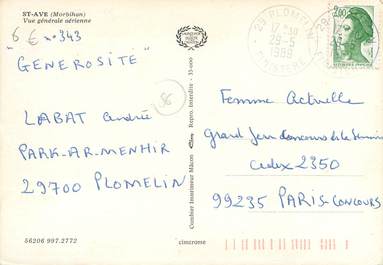 ST-AVE (Morbihan)
Vue générale aérienne
6 € n° 343
"GENEROSITÉ"
LABAT Andrée
PARK-AR-MENHIR
29700 PLOMELIN
8
56206 997.2772
Combier Imprimeur Mâcon
Repro. Interdite - 35-000
cimcrome
29 PLOMELIN
17 H 30
29-5
1989
FINISTERE
2,00
Femme Actuelle
Grand Jeu Concours de la Semaine
Cedex 2350
99235 PARIS-CONCOURS